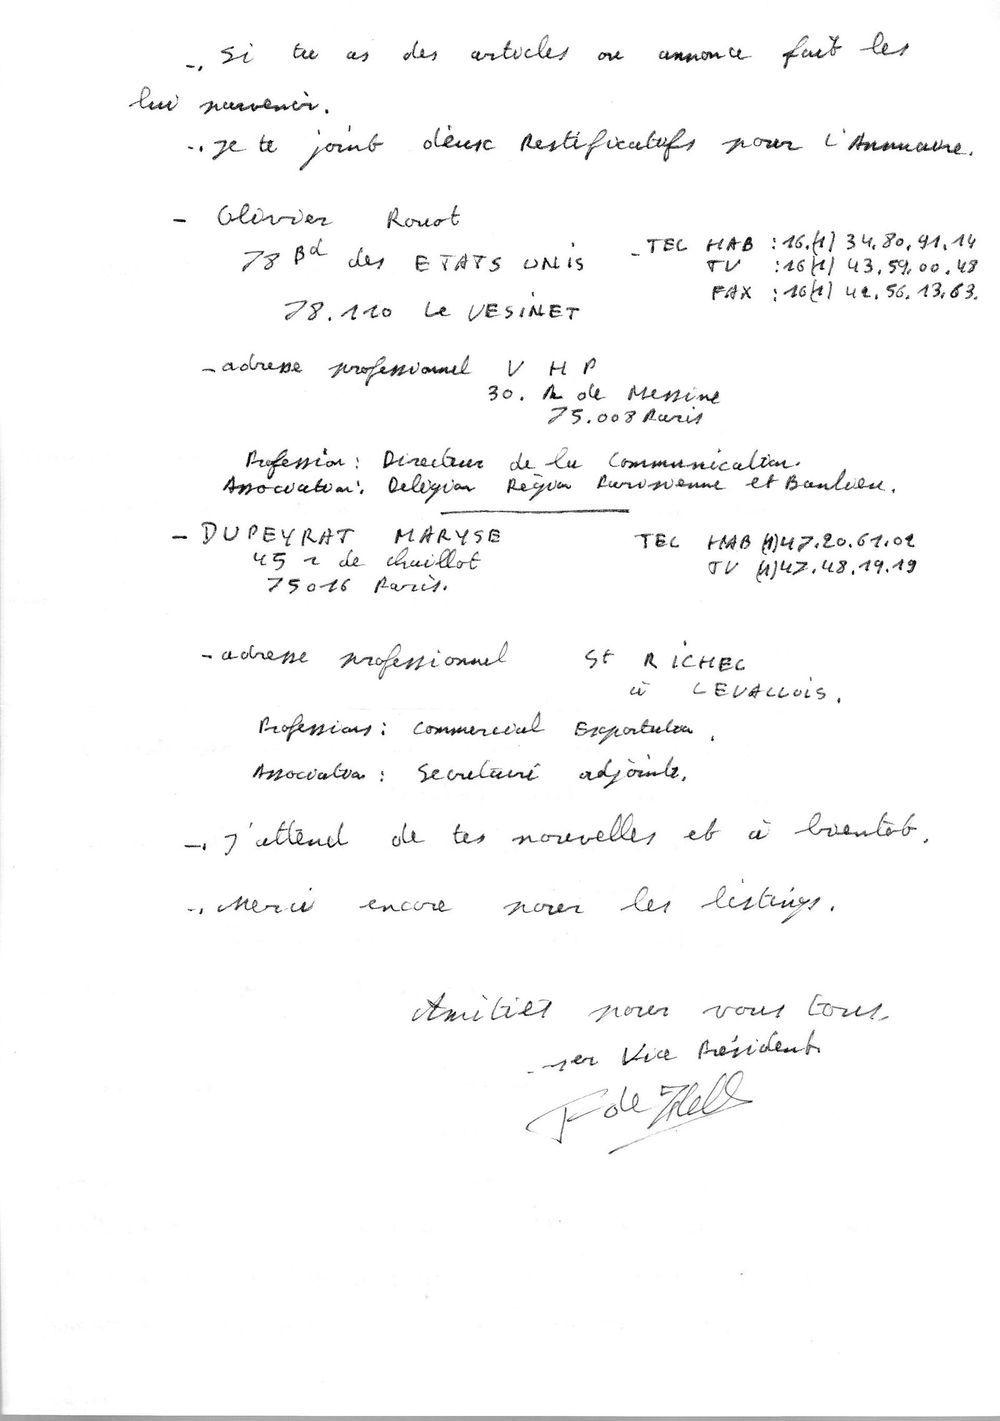 -. Si tu as des articles ou annonce fait les
lui parvenir.
-. je te joint deux Restificatifs pour l'Annuaire.
- Olivier Rouot
78 Bd des ETATS UNIS
78.110 Le VESINET
- TEL HAB : 16.(1) 34.80.91.14
TV : 16(1) 43.59.00.48
FAX : 16(1) 42.56.13.63.
- adresse professionnel V H P
30. R de Messine
75.008 Paris
Profession : Directeur de la Communication.
Association : Délégian Région Parisienne et Banlieu.
- DUPEYRAT MARYSE
45 r de chaillot
75016 Paris.
TEL HAB (1)47.20.61.02
TV (1)47.48.19.19
- adresse professionnel St RICHEL
à LEVALLOIS.
Professions : Commercial Exportation.
Association : Secretaire adjointe.
-. J'attend de tes nouvelles et à bientôt.
-. Merci encore pour les listings.
Amitiés pour vous tous.
-1er Vice Président.
F de